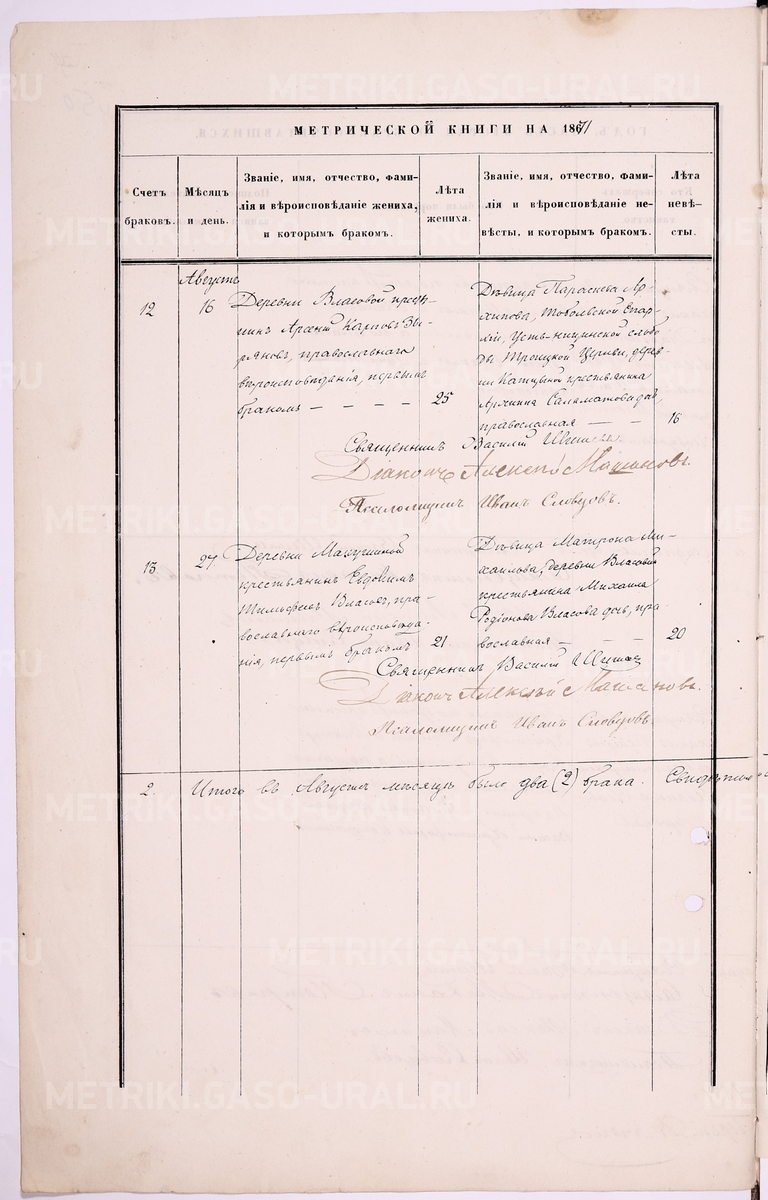 МЕТРИЧЕСКОЙ КНИГИ НА 1871
Счетъ браковъ.
Мѣсяцъ и день.
Званіе, имя, отчество, фами-
лія и вѣроисповѣданіе жениха,
и которымъ бракомъ.
Лѣта
жениха.
Званіе, имя, отчество, фами-
лія и вѣроисповѣданіе не-
вѣсты, и которымъ бракомъ.
Лѣта
невѣ-
сты.
Августъ
12
16
Деревни Власовой кресть-
янинъ Арсеній Карповъ Зы-
ряновъ, православнаго
вѣроисповѣданія, первымъ
бракомъ — — — —
25
Дѣвица Параскева Ар-
хипова, Тобольской Епар-
хіи, Усть-ницинской слобо-
ды Троицкой Церкви, дерев-
ни крестьянина
Архипа Саламатова дочь,
православная — —
16
Священникъ Василій
Діаконъ Алексѣй
Псаломщикъ Иванъ Словцовъ.
13
27
Деревни Макушиной
крестьянинъ Евдокимъ
Тимофеевъ Власовъ, пра-
вославнаго вѣроисповѣда-
нія, первымъ бракомъ
21
Дѣвица Матрона Ми-
хаилова, деревни Власовой
крестьянина Михаила
Родіонова Власова дочь, пра-
вославная — — —
20
Священникъ Василій
Діаконъ Алексѣй
Псаломщикъ Иванъ Словцовъ
2.
Итого въ Августѣ мѣсяцѣ было два (2) брака.
METRIKI.GASO-URAL.RU